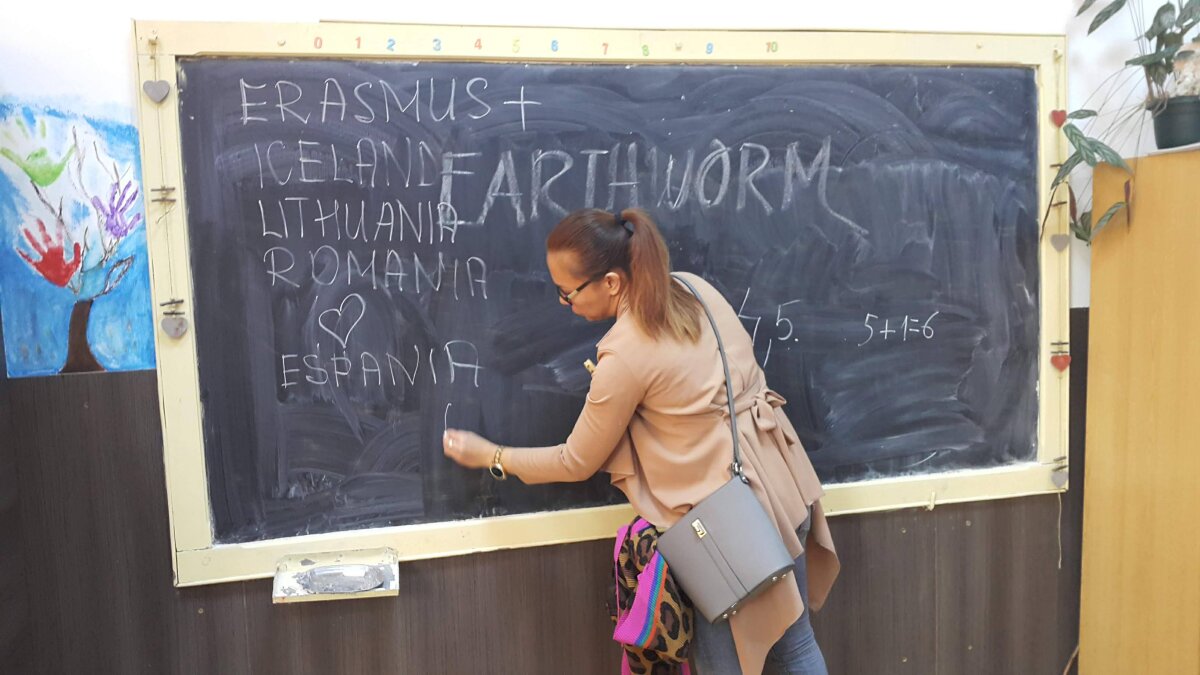 0 1 2 3 4 5 6 7 8 9 10
ERASMUS+
ICELAND
EARTHWORM
LITHUANIA
ROMANIA
ESPANIA
5.
5+1=6